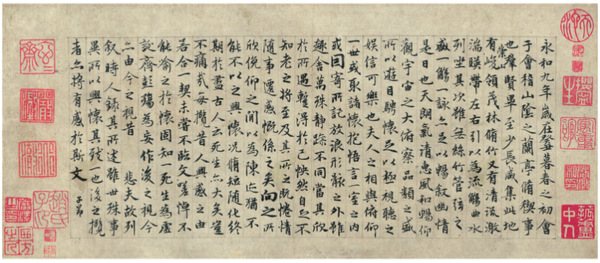 永和九年歲在癸丑暮春之初會
于會稽山陰之蘭亭脩稧事
也羣賢畢至少長咸集此地
有峻領茂林脩竹又有清流激
湍暎帶左右引以為流觴曲水
列坐其次雖無絲竹管弦之
盛一觴一詠亦足以暢敘幽情
是日也天朗氣清惠風和暢仰
觀宇宙之大俯察品類之盛
所以遊目騁懷足以極視聽之
娛信可樂也夫人之相與俯仰
一世或取諸懷抱悟言一室之內
或因寄所託放浪形骸之外雖
趣舍萬殊靜躁不同當其欣
於所遇蹔得於己怏然自足不
知老之將至及其所之既惓情
隨事遷感慨係之矣向之所
欣俛仰之間以為陳迹猶不
能不以之興懷況脩短隨化終
期於盡古人云死生亦大矣豈
不痛哉每攬昔人興感之由
若合一契未嘗不臨文嗟悼不
能喻之於懷固知一死生為虛
誕齊彭殤為妄作後之視今
亦由今之視昔悲夫故列
敘時人錄其所述雖世殊事
異所以興懷其致一也後之攬
者亦將有感於斯文
子昂